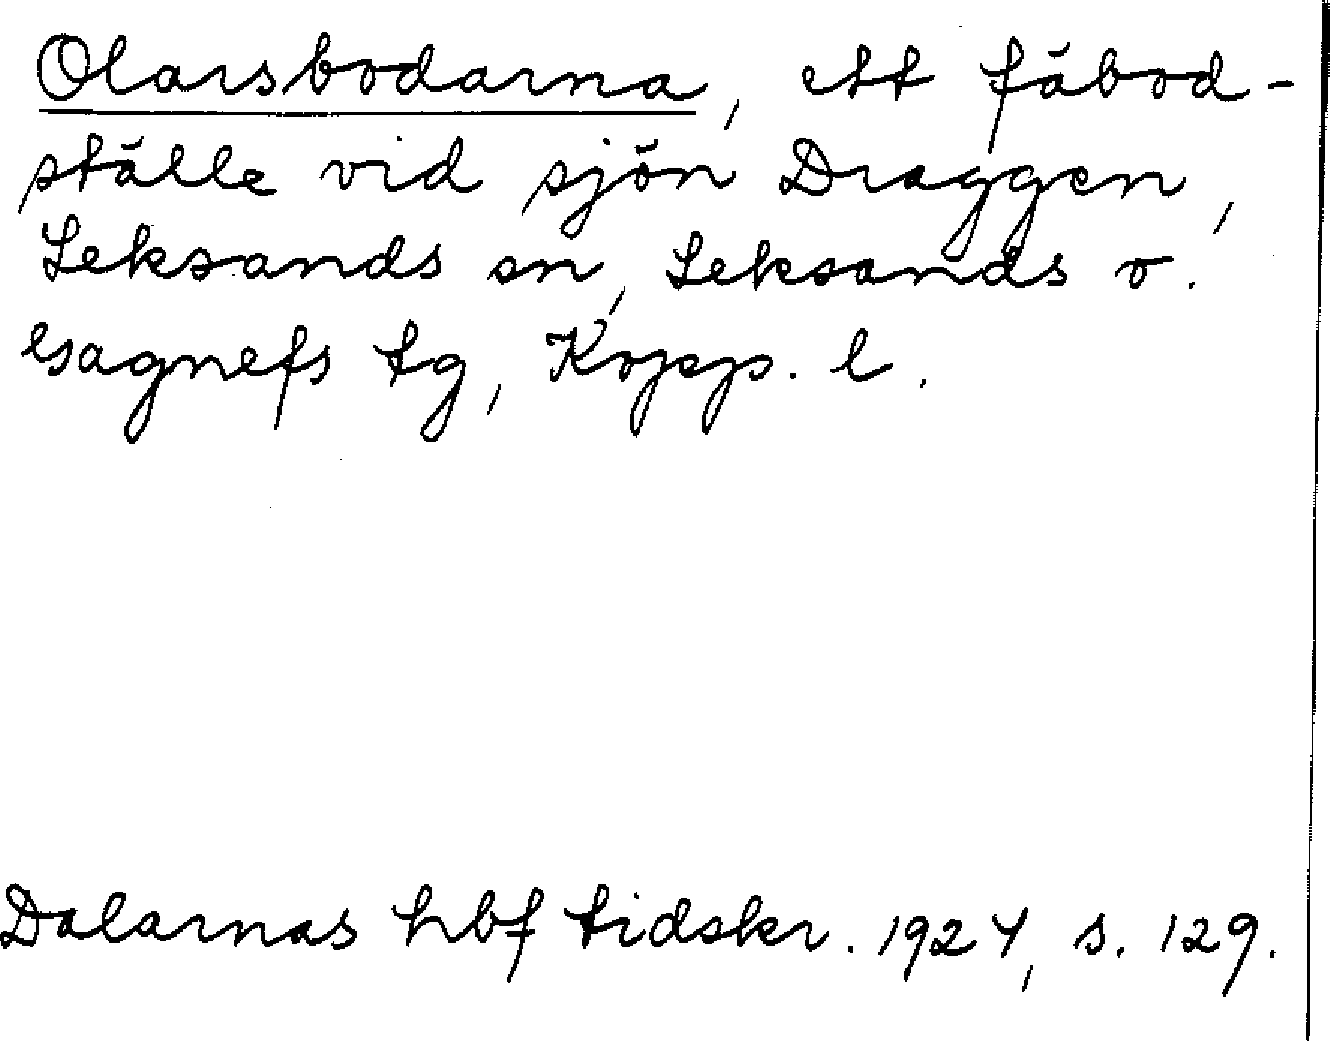 Olarsbodarna, ett fäbod-
ställe vid sjön Draggen,
Leksands sn, Leksands o.
Gagnefs tg, Kopp. l.
Dalarnas hbf tidskr. 1924, s. 129.